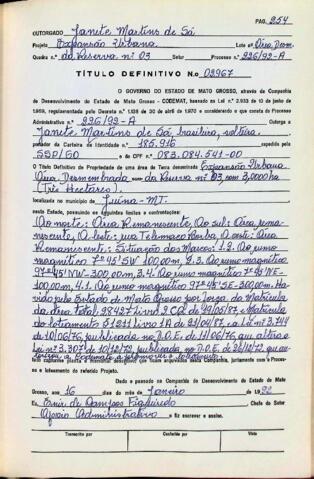 PAG. 254
OUTORGADO Janete Martins de Sá
Projeto Expansão Urbana Lote nº Área Desm.
Quadra nº da Reserva nº 03 Processo nº 226/92-A
TÍTULO DEFINITIVO N.o 02967
O GOVERNO DO ESTADO DE MATO GROSSO, através da Companhia
de Desenvolvimento do Estado de Mato Grosso - CODEMAT, baseado na Lei nº 2.933 de 10 de junho
de 1969, regulamentada pelo Decreto nº 1.138 de 30 de abril de 1970 e considerando o que consta do Processo
Administrativo nº 226/92-A outorga a
Janete Martins de Sá, brasileira, solteira,
portador da Carteira de Identidade nº 185.916
SSP/GO e do CPF nº 083.084.541-00
O Título Definitivo de Propriedade de uma área de terra denominada Expansão Urbana
Área Desmembrada da Reserva nº 03, com 3,0000 ha
(Três Hectares).
localizada no município de Juína-MT.
neste Estado, possuindo os seguintes limites e confrontações:
Ao norte: Área Remanescente, Ao sul: Área rema-
nescente, A leste: rua Telamaco Borba, A oeste: Área
Remanescente. Situação dos Marcos: 1.2. Ao rumo
magnético 7º45'SW 100,00m, 2.3. Ao rumo magnético
97º45'NW-300,00m, 3.4. Ao rumo magnético 7º45'NE-
100,00m, 4.1. Ao rumo magnético 97º45'SE-300,00m. Ha-
vido pelo Estado de Mato Grosso por força da Matrícula
da área total 28427 Livro 2 CQ de 19/05/87, e Matrícula
do loteamento 51211 Livro 1R de 23/04/87, e a Lei nº 3.744
de 10/06/76, publicada no D.O.E. de 14/06/76, que altera a
Lei nº 3.307 de 10/12/72, publicada no D.O.E. de 26/12/72, que au-
toriza a Codemat a promover o loteamento.
mente com o Processo
e loteamento do referido Projeto.
Dado e passado na Companhia de Desenvolvimento do Estado de Mato
Grosso, aos 16 dias do mês de Janeiro de 1992
Eu, de Campos Figueiredo Chefe do Setor
Apoio Administrativo o fiz escrever e assino.
Transcrito por
Conferido por
Visto